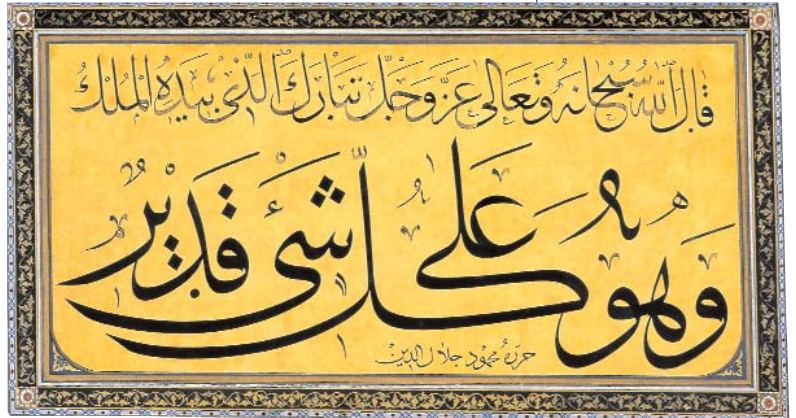 قال الله سبحانه وتعالى عز وجل تبارك الذي بيده الملك
وهو على كل شئ قدير
حرره محمود جلال الدين